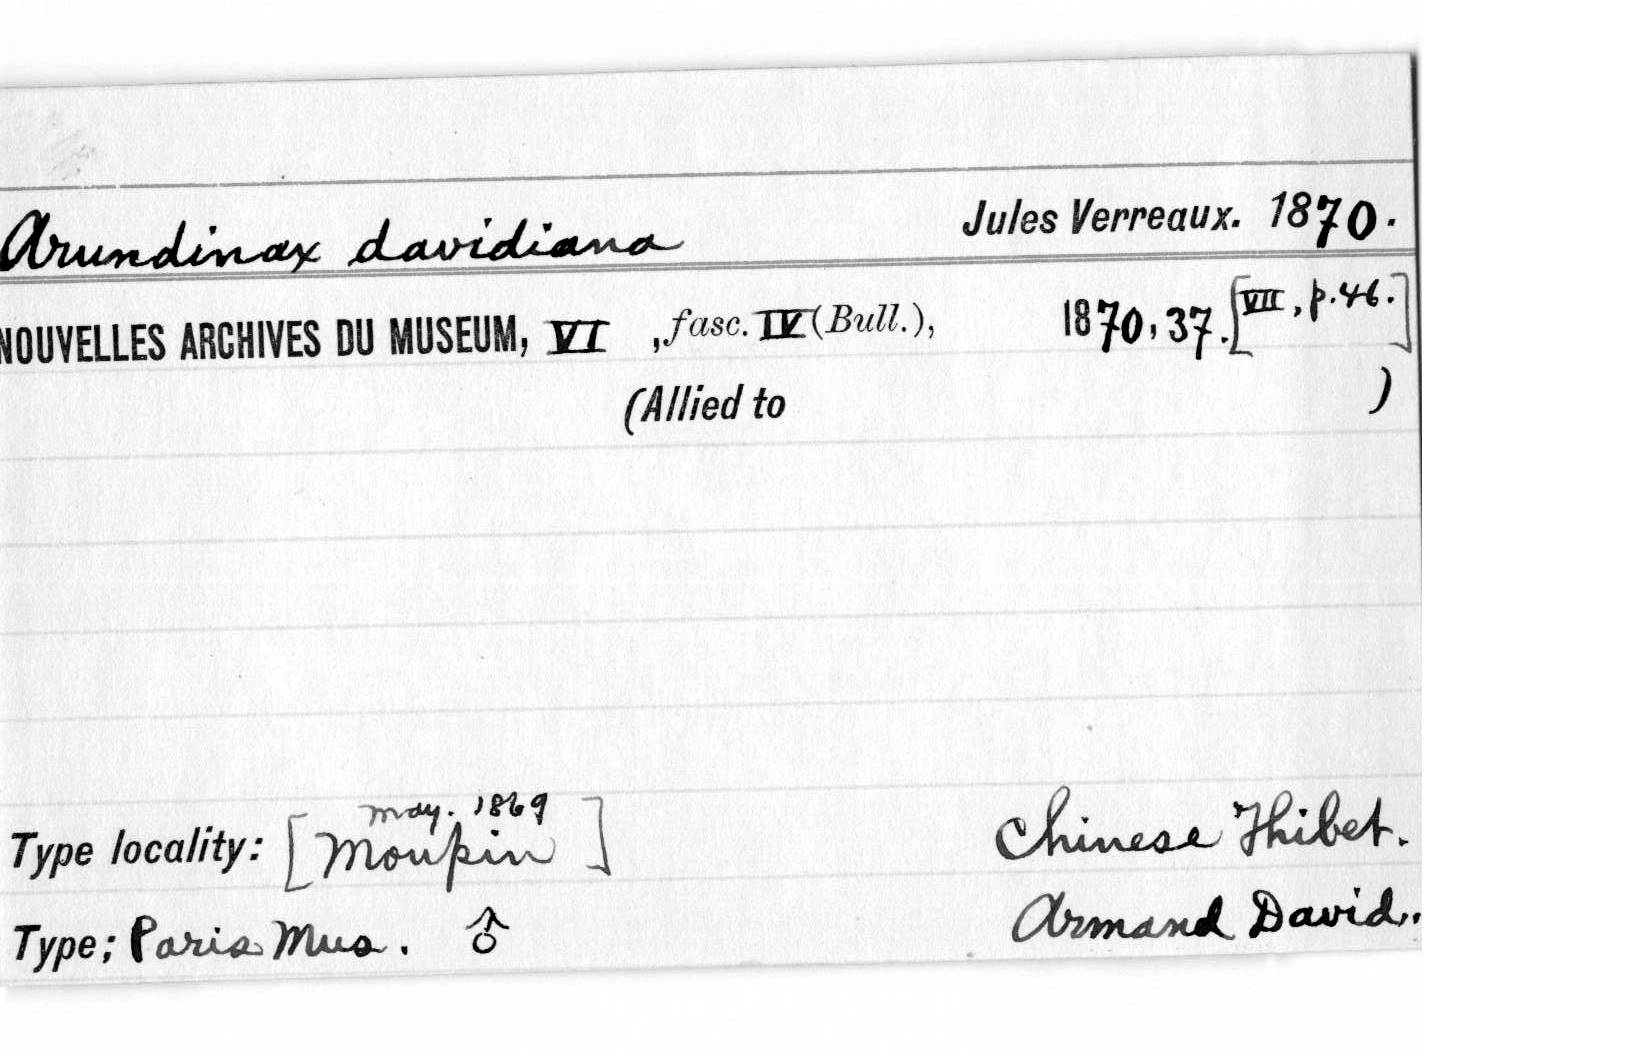 Arundinax davidiana Jules Verreaux. 1870.
NOUVELLES ARCHIVES DU MUSEUM, VI , fasc. IV (Bull.), 1870, 37. [VII, p. 46.]
(Allied to )
May. 1869
Type locality: [Moupin] Chinese Thibet.
Type; Paris Mus. ♂ Armand David.